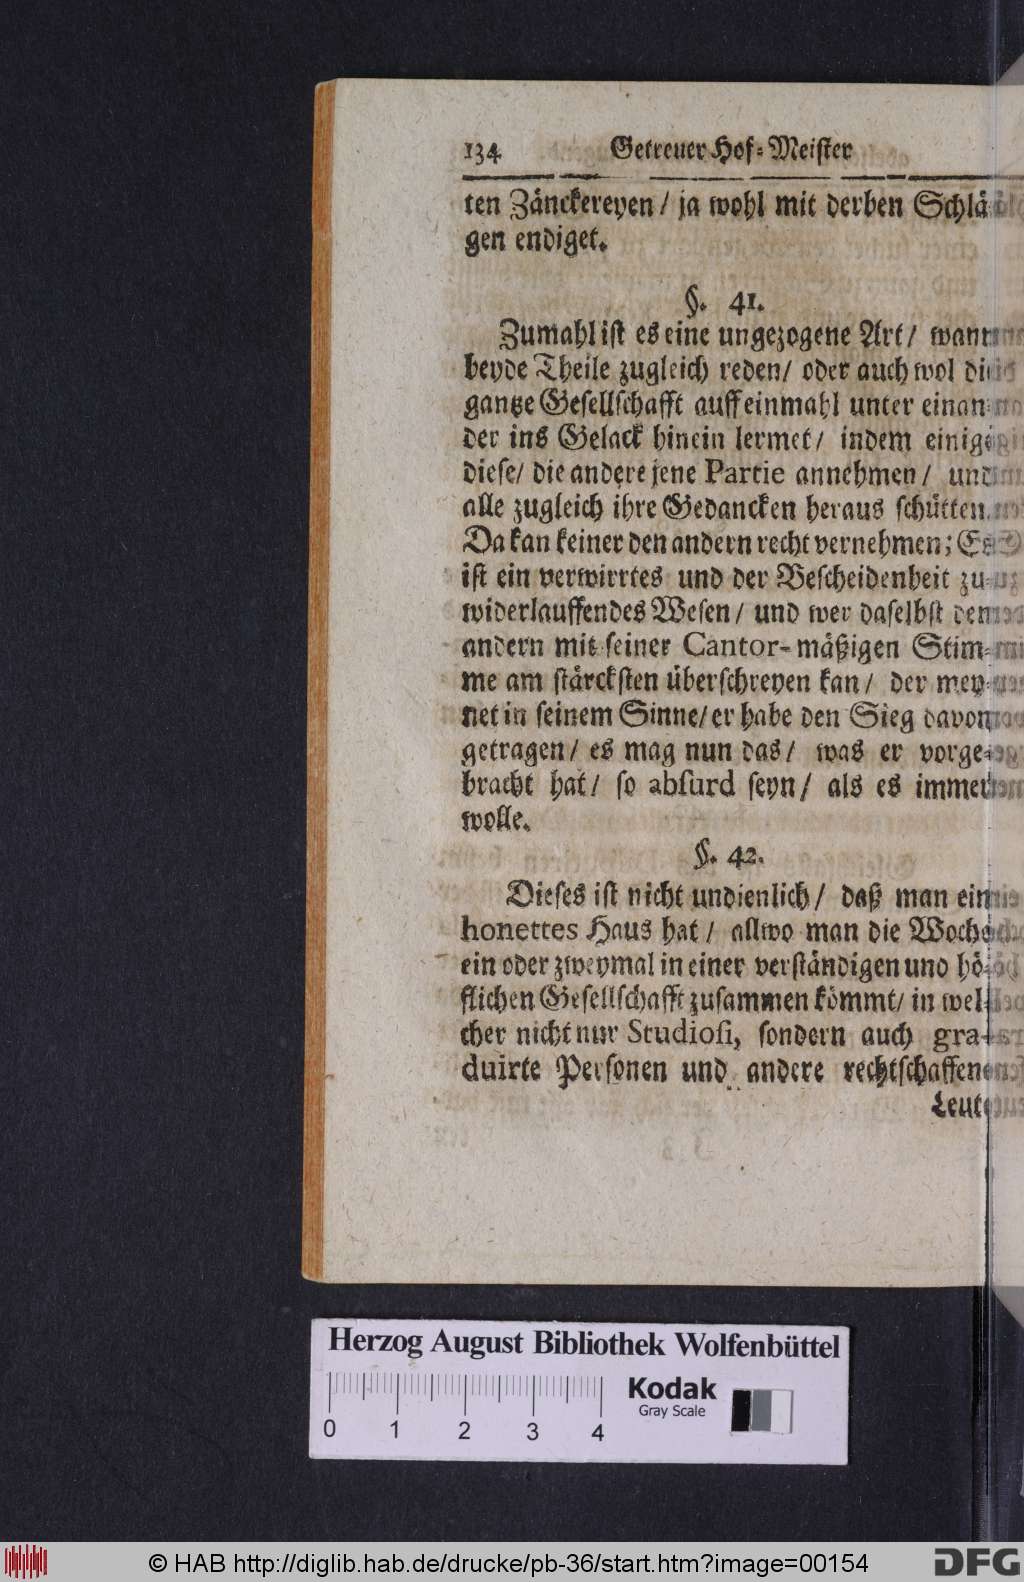 134 Getreuer Hof-Meister
ten Zänckereyen / ja wohl mit derben Schlä-
gen endiget.
§. 41.
Zumahl ist es eine ungezogene Art / wann
beyde Theile zugleich reden / oder auch wol die
gantze Gesellschafft auff einmahl unter einan-
der ins Gelack hinein lermet / indem einige
diese / die andere jene Partie annehmen / und
alle zugleich ihre Gedancken heraus schütten.
Da kan keiner den andern recht vernehmen; Es
ist ein verwirrtes und der Bescheidenheit zu-
widerlauffendes Wesen / und wer daselbst dem
andern mit seiner Cantor-mäßigen Stim-
me am stärcksten überschreyen kan / der mey-
net in seinem Sinne / er habe den Sieg davon
getragen / es mag nun das / was er vorge-
bracht hat / so absurd seyn / als es immer
wolle.
§. 42.
Dieses ist nicht undienlich / daß man ein
honettes Haus hat / allwo man die Woche
ein oder zweymal in einer verständigen und hö-
flichen Gesellschafft zusammen kömmt / in wel-
cher nicht nur Studiosi, sondern auch gra-
duirte Personen und andere rechtschaffene
Leute
Herzog August Bibliothek Wolfenbüttel
Kodak
Gray Scale
0 1 2 3 4
© HAB http://diglib.hab.de/drucke/pb-36/start.htm?image=00154
DFG